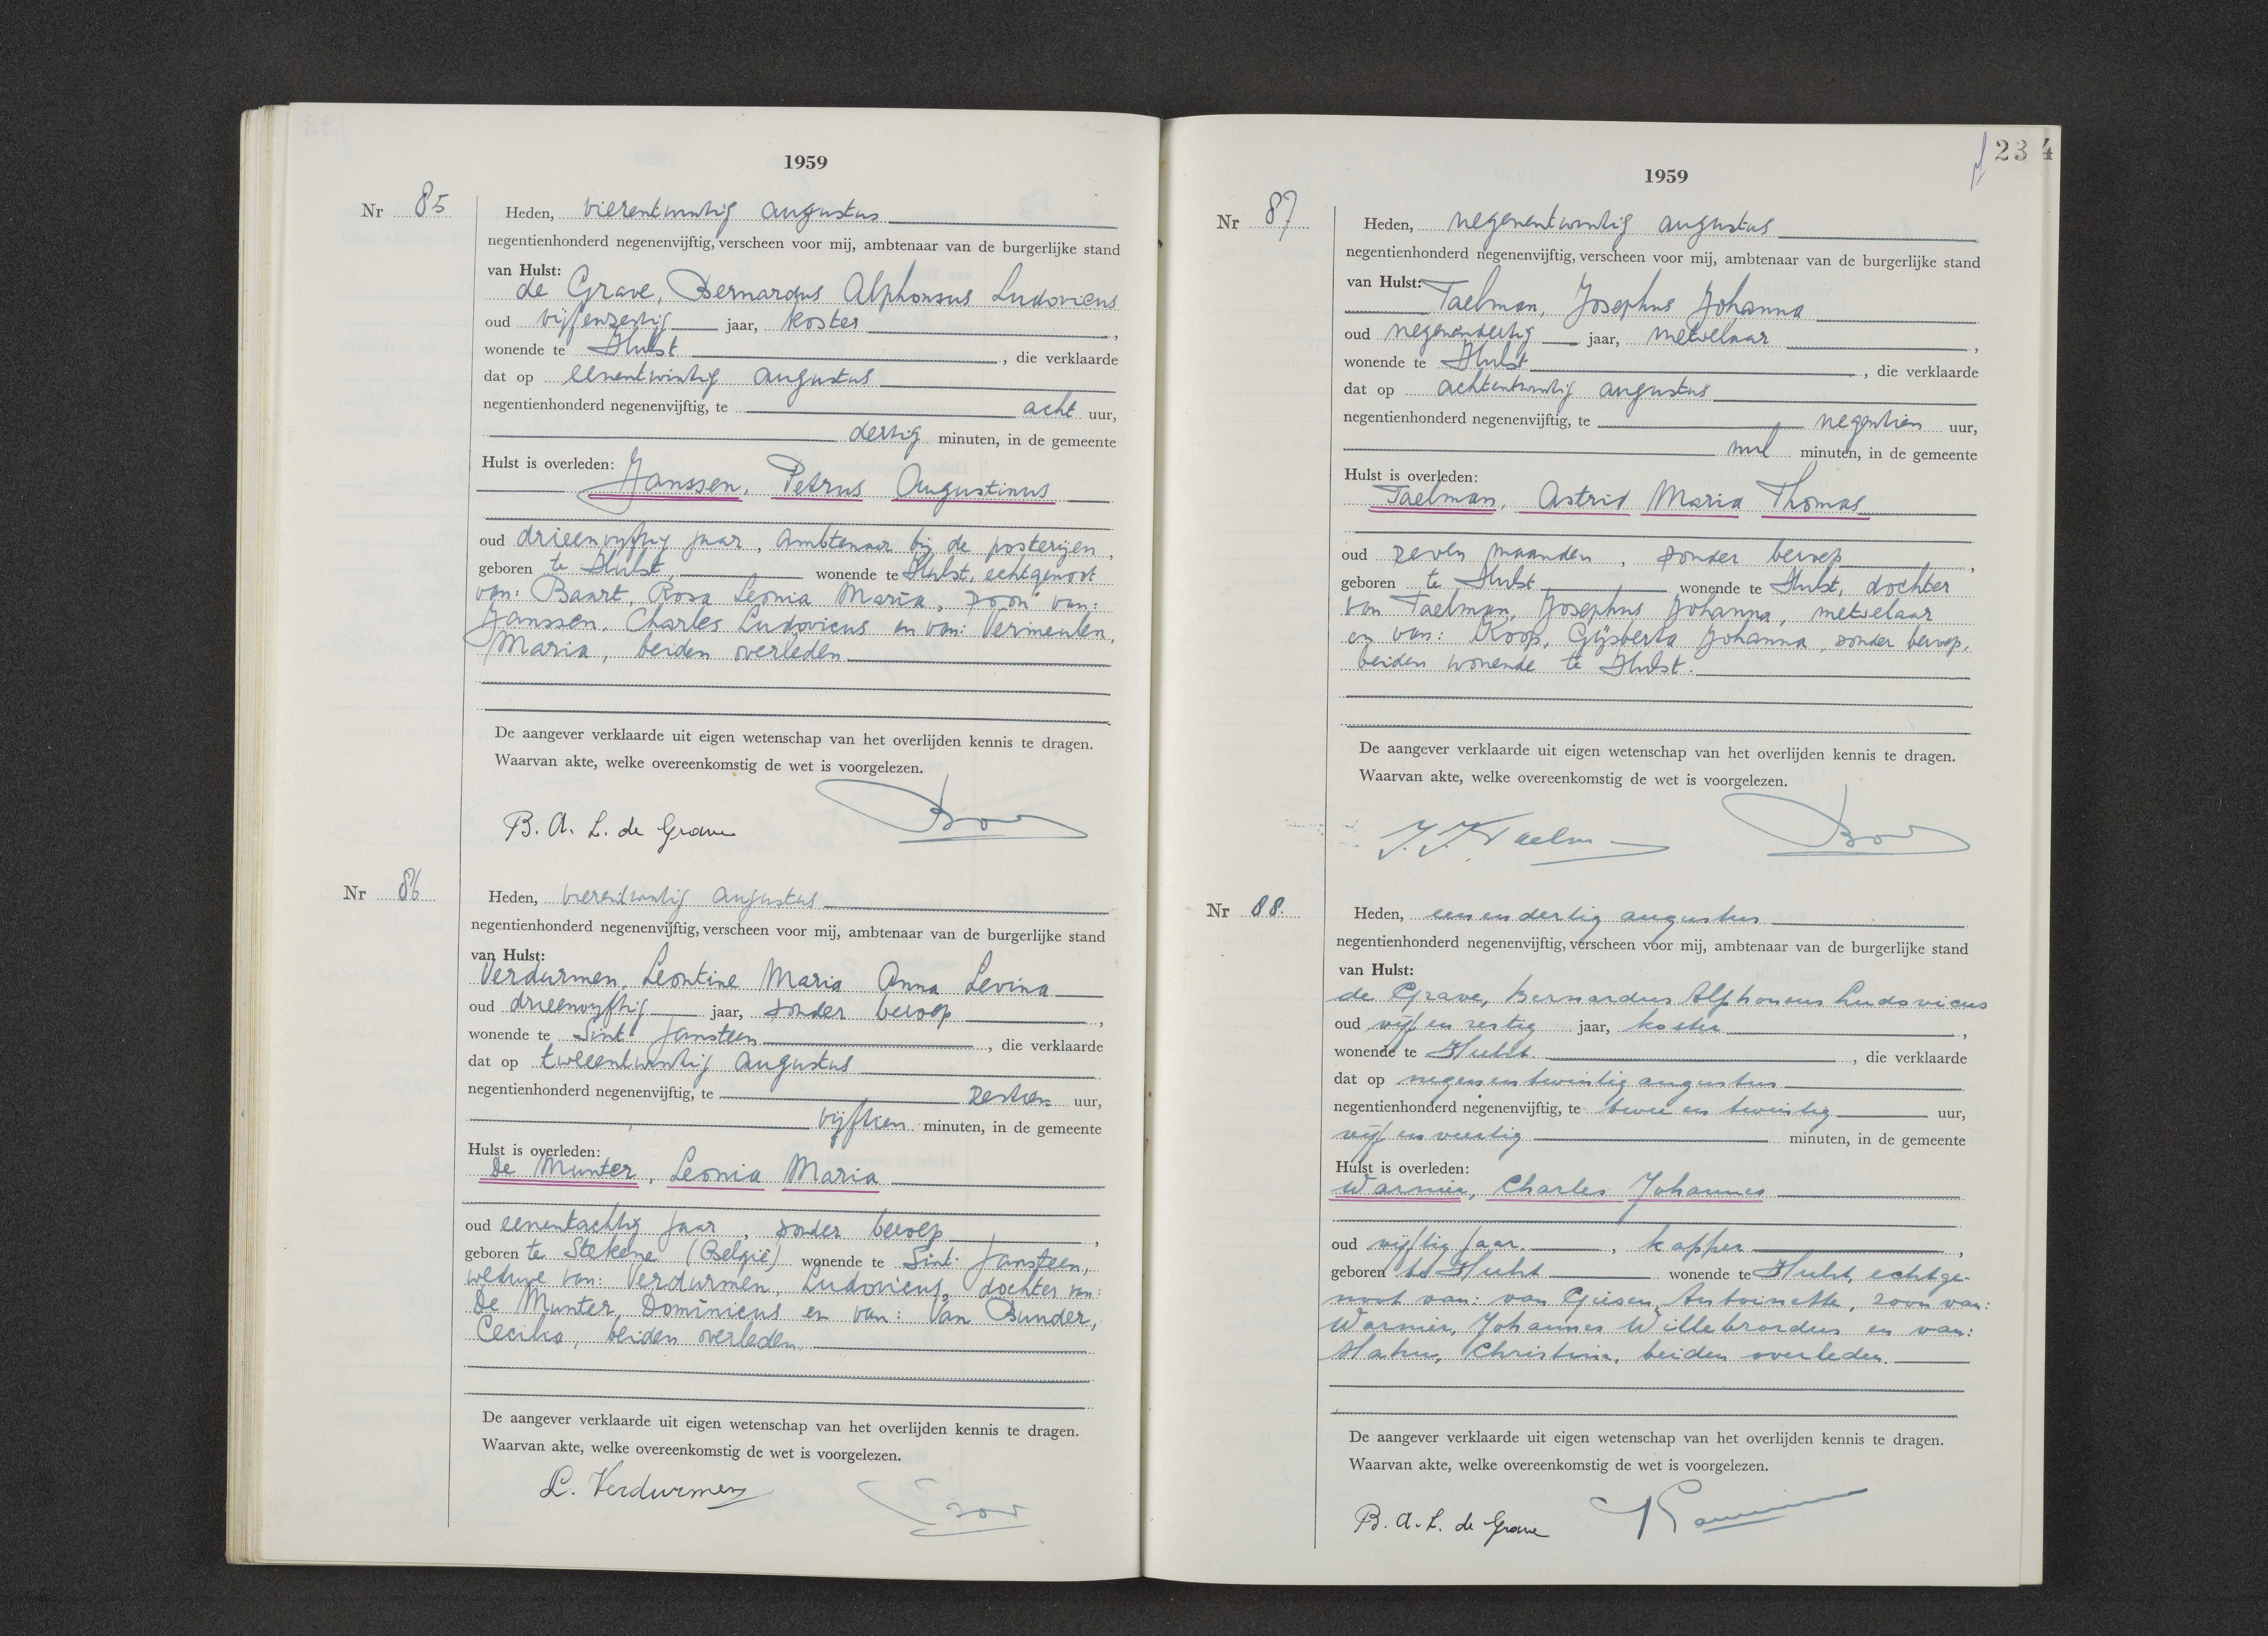 1959
Nr 85
Heden, vierentwintig augustus
negentienhonderd negenenvijftig, verscheen voor mij, ambtenaar van de burgerlijke stand
van Hulst:
de Grave, Bernardus Alphonsus Ludovicus
oud vijfenzestig jaar, koster,
wonende te Hulst, die verklaarde
dat op eenentwintig augustus
negentienhonderd negenenvijftig, te acht uur,
dertig minuten, in de gemeente
Hulst is overleden:
Janssen, Petrus Augustinus
oud drieenvyftig jaar, ambtenaar bij de posterijen,
geboren te Hulst, wonende te Hulst, echtgenoot
van: Baart, Rosa Leonia Maria, zoon van:
Janssen, Charles Ludovicus en van: Vermeulen,
Maria, beiden overleden
De aangever verklaarde uit eigen wetenschap van het overlijden kennis te dragen.
Waarvan akte, welke overeenkomstig de wet is voorgelezen.
B. A. L. de Grave
Nr 86
Heden, vierentwintig augustus
negentienhonderd negenenvijftig, verscheen voor mij, ambtenaar van de burgerlijke stand
van Hulst:
Verdurmen, Leontine Maria Anna Levina
oud drieenvyftig jaar, zonder beroep,
wonende te Sint Jansteen, die verklaarde
dat op tweeentwintig augustus
negentienhonderd negenenvijftig, te zestien uur,
vijftien minuten, in de gemeente
Hulst is overleden:
De Munter, Leonia Maria
oud eenentachtig jaar, zonder beroep,
geboren te Stekene (België) wonende te Sint Jansteen,
weduwe van: Verdurmen, Ludovicus, dochter van:
De Munter, Dominicus en van: Van Bunder,
Cecilia, beiden overleden.
De aangever verklaarde uit eigen wetenschap van het overlijden kennis te dragen.
Waarvan akte, welke overeenkomstig de wet is voorgelezen.
L. Verdurmen
234
1959
Nr 87
Heden, negenentwintig augustus
negentienhonderd negenenvijftig, verscheen voor mij, ambtenaar van de burgerlijke stand
van Hulst:
Taelman, Josephus Johanna
oud negenendertig jaar, metselaar,
wonende te Hulst, die verklaarde
dat op achtentwintig augustus
negentienhonderd negenenvijftig, te negentien uur,
nul minuten, in de gemeente
Hulst is overleden:
Taelman, Astrid Maria Thomas
oud zeven maanden, zonder beroep,
geboren te Hulst wonende te Hulst, dochter
van Taelman, Josephus Johanna, metselaar
en van: Koop, Gijsberta Johanna, zonder beroep,
beiden wonende te Hulst.
De aangever verklaarde uit eigen wetenschap van het overlijden kennis te dragen.
Waarvan akte, welke overeenkomstig de wet is voorgelezen.
J. J. Taelm
Nr 88.
Heden, eenendertig augustus
negentienhonderd negenenvijftig, verscheen voor mij, ambtenaar van de burgerlijke stand
van Hulst:
de Grave, Bernardus Alphonsus Ludovicus
oud vijfenzestig jaar, koster,
wonende te Hulst, die verklaarde
dat op negenentwintig augustus
negentienhonderd negenenvijftig, te tweeentwintig uur,
vijfenveertig minuten, in de gemeente
Hulst is overleden:
Warnier, Charles Johannes
oud vijftig jaar, kapper,
geboren te Hulst wonende te Hulst, echtge-
noot van: van Giesen, Antoinette, zoon van:
Warnier, Johannes Willebrordus en van:
Hahn, Christina, beiden overleden.
De aangever verklaarde uit eigen wetenschap van het overlijden kennis te dragen.
Waarvan akte, welke overeenkomstig de wet is voorgelezen.
B. A. L. de Grave